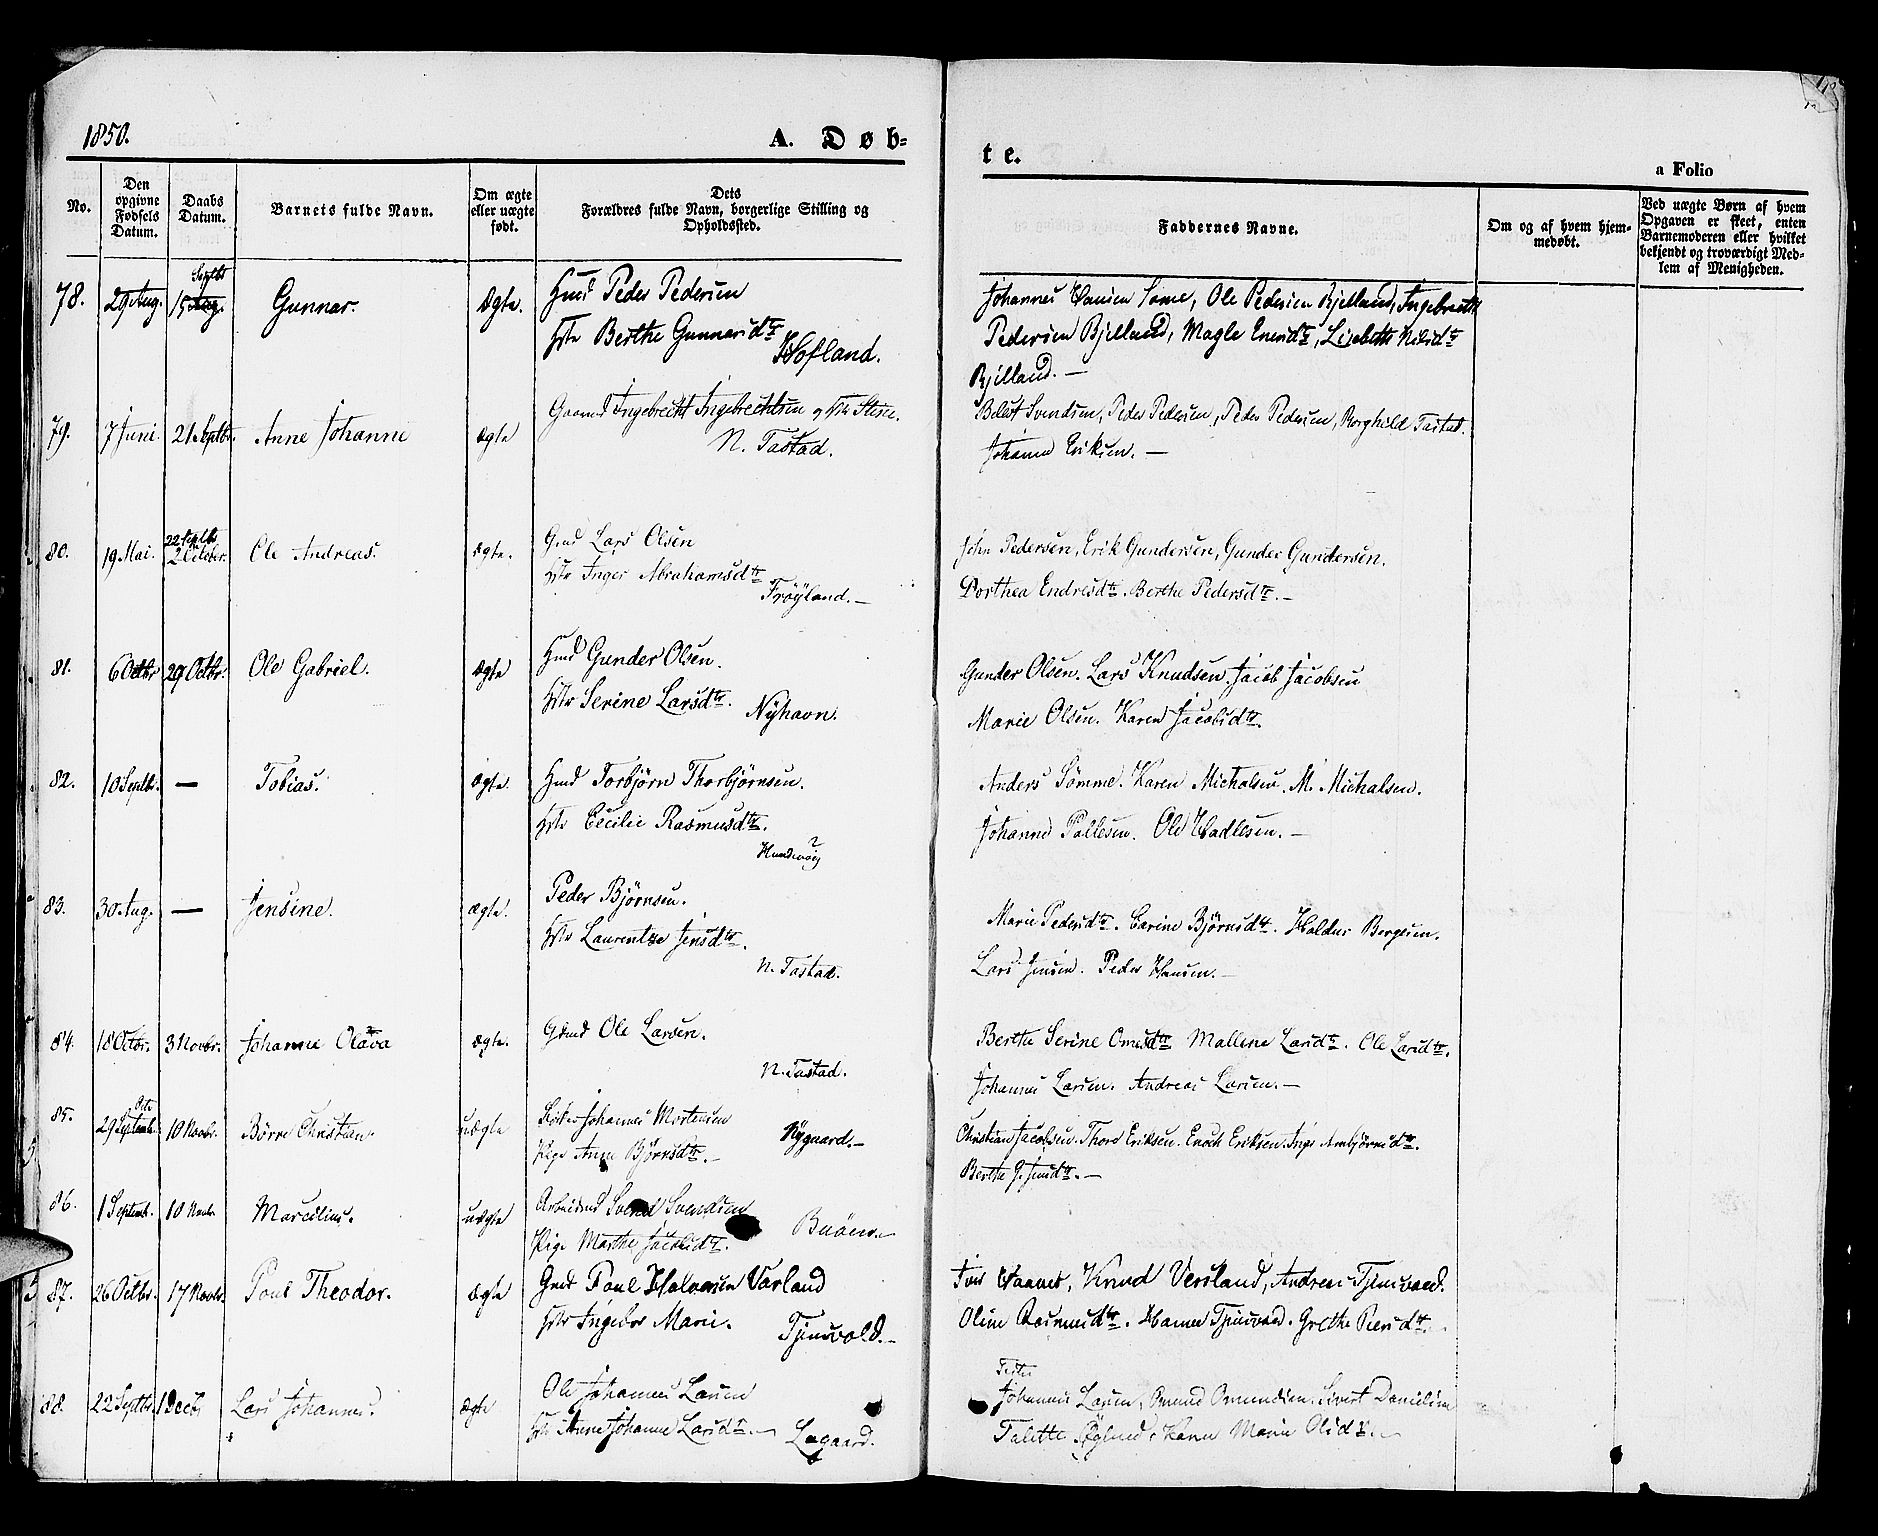 1850.
A. Døb-
te.
a Folio
No.
Den opgivne Fødsels Datum.
Daabs Datum.
Barnets fulde Navn.
Om ægte eller uægte født.
Dets Forældres fulde Navn, borgerlige Stilling og Opholdssted.
Faddernes Navne.
Om og af hvem hjemmedøbt.
Ved uægte Børn af hvem Opgaven er skeet, enten Barnemoderen eller hvilket bekjendt og troværdigt Medlem af Menigheden.
78. 29 Aug. 15 Aug. Septbr Gunnar. Ægte. Hmd Peder Pedersen
Hstr Berthe Gunnarsdtr
Hofland.
Johannes Hansen Søme, Ole Pedersen Bjelland, Ingebrecth
Pedersen Bjelland, Magle Enersdtr, Lisebeth Nilsdtr
Bjelland. —
79. 7 Juni. 21 Septbr. Anne Johanne ægte Gaamd Ingebrecht Ingebrechtsen og
N. Tastad.
Svendsen, Peder Pedersen, Peder Pedersen, Borghild Tastad.
Johanne Eriksen. —
80. 19 Mai. 22 Septbr 2 Octobr. Ole Andreas. ægte. Gmd Lars Olsen
Hstr Inger Abrahamsdtr
Frøyland. —
John Pedersen, Erik Gundersen, Gunder Gundersen.
Dorthea Endresdtr. Berthe Pedersdtr. —
81. 6 Octbr 29 Octbr. Ole Gabriel. ægte Hmd Gunder Olsen.
Hstr Serine Larsdtr. Nyhavn.
Gunder Olsen. Lars Knudsen. Jacob Jacobsen
Marie Olsen. Karen Jacobsdtr.
82. 10 Septbr. — Tobias. ægte. Hmd Torbjørn Thorbjørnsen.
Hstr Cecilie Rasmusdtr.
Hundevøig
Anders Sømme. Karen Michalsen. M. Michalsen.
Johanne Pallesen. Ole Hadlesen. —
83. 30 Aug. — Jensine. ægte. Peder Bjørnsen.
Hstr Laurentze Jensdtr.
N. Tastad.
Marie Pedersdtr. Carine Bjørnsdtr. Haldur Bergesen.
Lars Jensen. Peder Hansen. —
84. 18 Octbr. 3 Novbr. Johanne Olava ægte. Gdmd Ole Larsen.
N. Tastad.
Berthe Serine Omesdtr Mallene Larsdtr. Ole Larsdtr.
Johannes Larsen. Andreas Larsen. —
85. 29 Septembr. 10 Novbr. Børre Christian. uægte Johannes Mortensen
Pige Anne Bjørnsdtr. — Nygaard. —
Christian Jacobsen. Thore Eriksen. Enoch Eriksen. Inge Arnbjørnsdtr.
Berthe J. Jensdtr. —
86. 1 Septemb. 10 Novbr. Marcelius. uægte Arbeidsmd Svend Svendsen
Pige Marthe Jacobsdtr. Buøen. —
87. 26 Octbr. 17 Novbr. Poul Theodor. ægte Gmd Poul Halvorsen Varland
Hstr Ingebor Marie. Tjensvold. —
Knud Versland, Andreas Tjensvold.
Oline Rasmusdtr. Hanne Tjensvold. Grethe Piersdtr.
88. 22 Septbr. 1 Decbr Lars Johannes. ægte Ole Johannes Larsen
Hstr Anne Johanne Larsdtr. — Lagaard.
Johannes Larsen, Omund Omundsen. Sivert Danielsen
Talette Øglend, Karen Marie Olsdtr. —